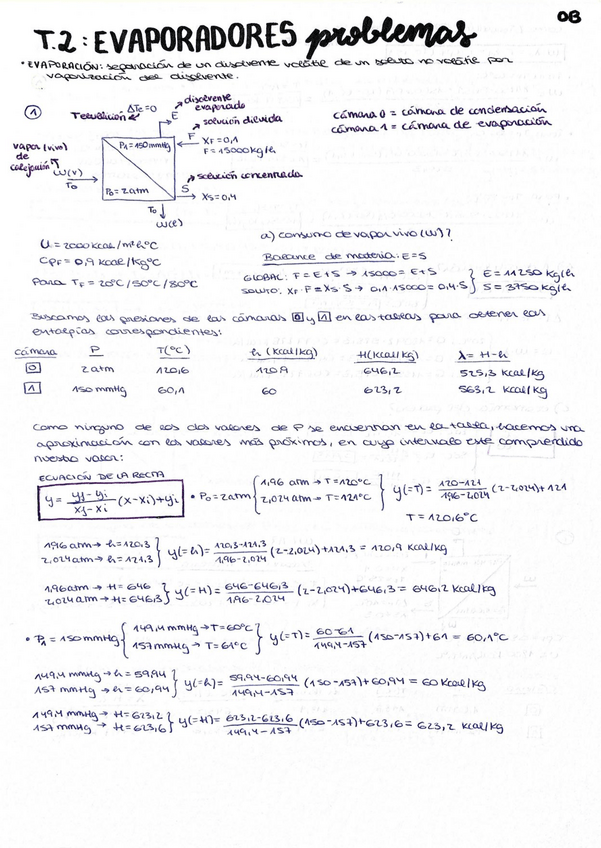 OB
T.2: EVAPORADORES problemas
• EVAPORACIÓN: separación de un disolvente volátil de un soluto no volátil por
vaporización del disolvente.
① Tebullición ΔTe=0 disolvente
evaporado
E
solución diluida
cámara 0 = cámara de condensación
cámara 1 = cámara de evaporación
P₁=150mmHg
F XF=0,1
F=15000kg/h
vapor (vivo)
de
calefacción
W(v)
T₀
P₀=2atm
solución concentrada
S XS=0,4
T₀
W(l)
U = 2000 kcal/m²h°C
CPF = 0,9 kcal/kg°C
Para TF = 20°C/50°C/80°C
a) consumo de vapor vivo (W)?
Balance de materia: E=S
GLOBAL: F=E+S → 15000 = E+S } E=11250 kg/h
SOLUTO: XF·F=XS·S → 0,1·15000=0,4·S } S=3750 kg/h
Buscamos las presiones de las cámaras 0 y 1 en las tablas para obtener las
entalpías correspondientes:
cámara P T(°C) h (kcal/kg) H(kcal/kg) λ = H-h
0 2 atm 120,6 120,9 646,2 525,3 kcal/kg
1 150 mmHg 60,1 60 623,2 563,2 kcal/kg
Como ninguno de los dos valores de P se encuentran en la tabla, hacemos una
aproximación con los valores más próximos, en cuyo intervalo esté comprendido
nuestro valor:
ECUACIÓN DE LA RECTA
y = (yj-yi)/(xj-xi) (x-xi)+yi
• P₀=2atm { 1,96 atm → T=120°C
2,024 atm → T=121°C } y(=T) = (120-121)/(1,96-2,024) (2-2,024)+121
T = 120,6°C
1,96 atm → h=120,3
2,024 atm → h=121,3 } y(=h) = (120,3-121,3)/(1,96-2,024) (2-2,024)+121,3 = 120,9 kcal/kg
1,96 atm → H=646
2,024 atm → H=646,3 } y(=H) = (646-646,3)/(1,96-2,024) (2-2,024)+646,3 = 646,2 kcal/kg
• P₁ = 150 mmHg { 149,4 mmHg → T=60°C
157 mmHg → T=61°C } y(=T) = (60-61)/(149,4-157) (150-157)+61 = 60,1°C
149,4 mmHg → h=59,94
157 mmHg → h=60,94 } y(=h) = (59,94-60,94)/(149,4-157) (150-157)+60,94 = 60 kcal/kg
149,4 mmHg → H=623,2
157 mmHg → H=623,6 } y(=H) = (623,2-623,6)/(149,4-157) (150-157)+623,6 = 623,2 kcal/kg